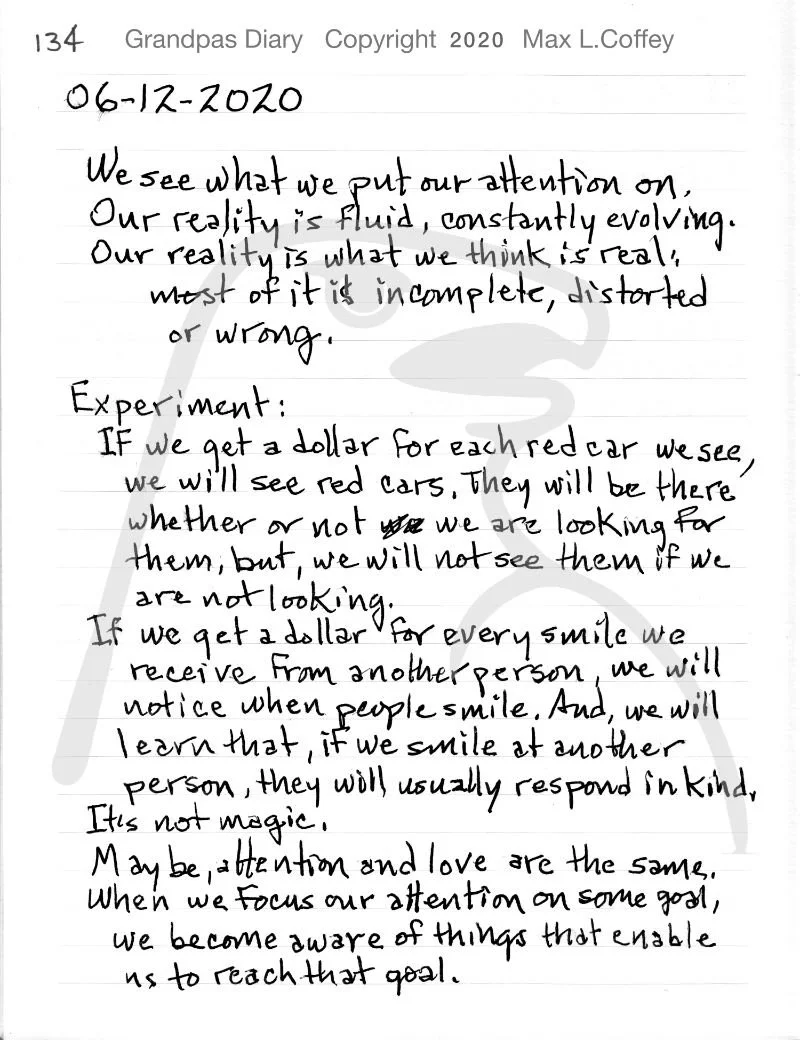 134 Grandpas Diary Copyright 2020 Max L.Coffey
06-12-2020
We see what we put our attention on.
Our reality is fluid, constantly evolving.
Our reality is what we think is real;
most of it is incomplete, distorted
or wrong.
Experiment:
If we get a dollar for each red car we see,
we will see red cars. They will be there
whether or not we are looking for
them, but, we will not see them if we
are not looking.
If we get a dollar for every smile we
receive from another person, we will
notice when people smile. And, we will
learn that, if we smile at another
person, they will usually respond in kind.
It's not magic.
Maybe, attention and love are the same.
When we focus our attention on some goal,
we become aware of things that enable
us to reach that goal.